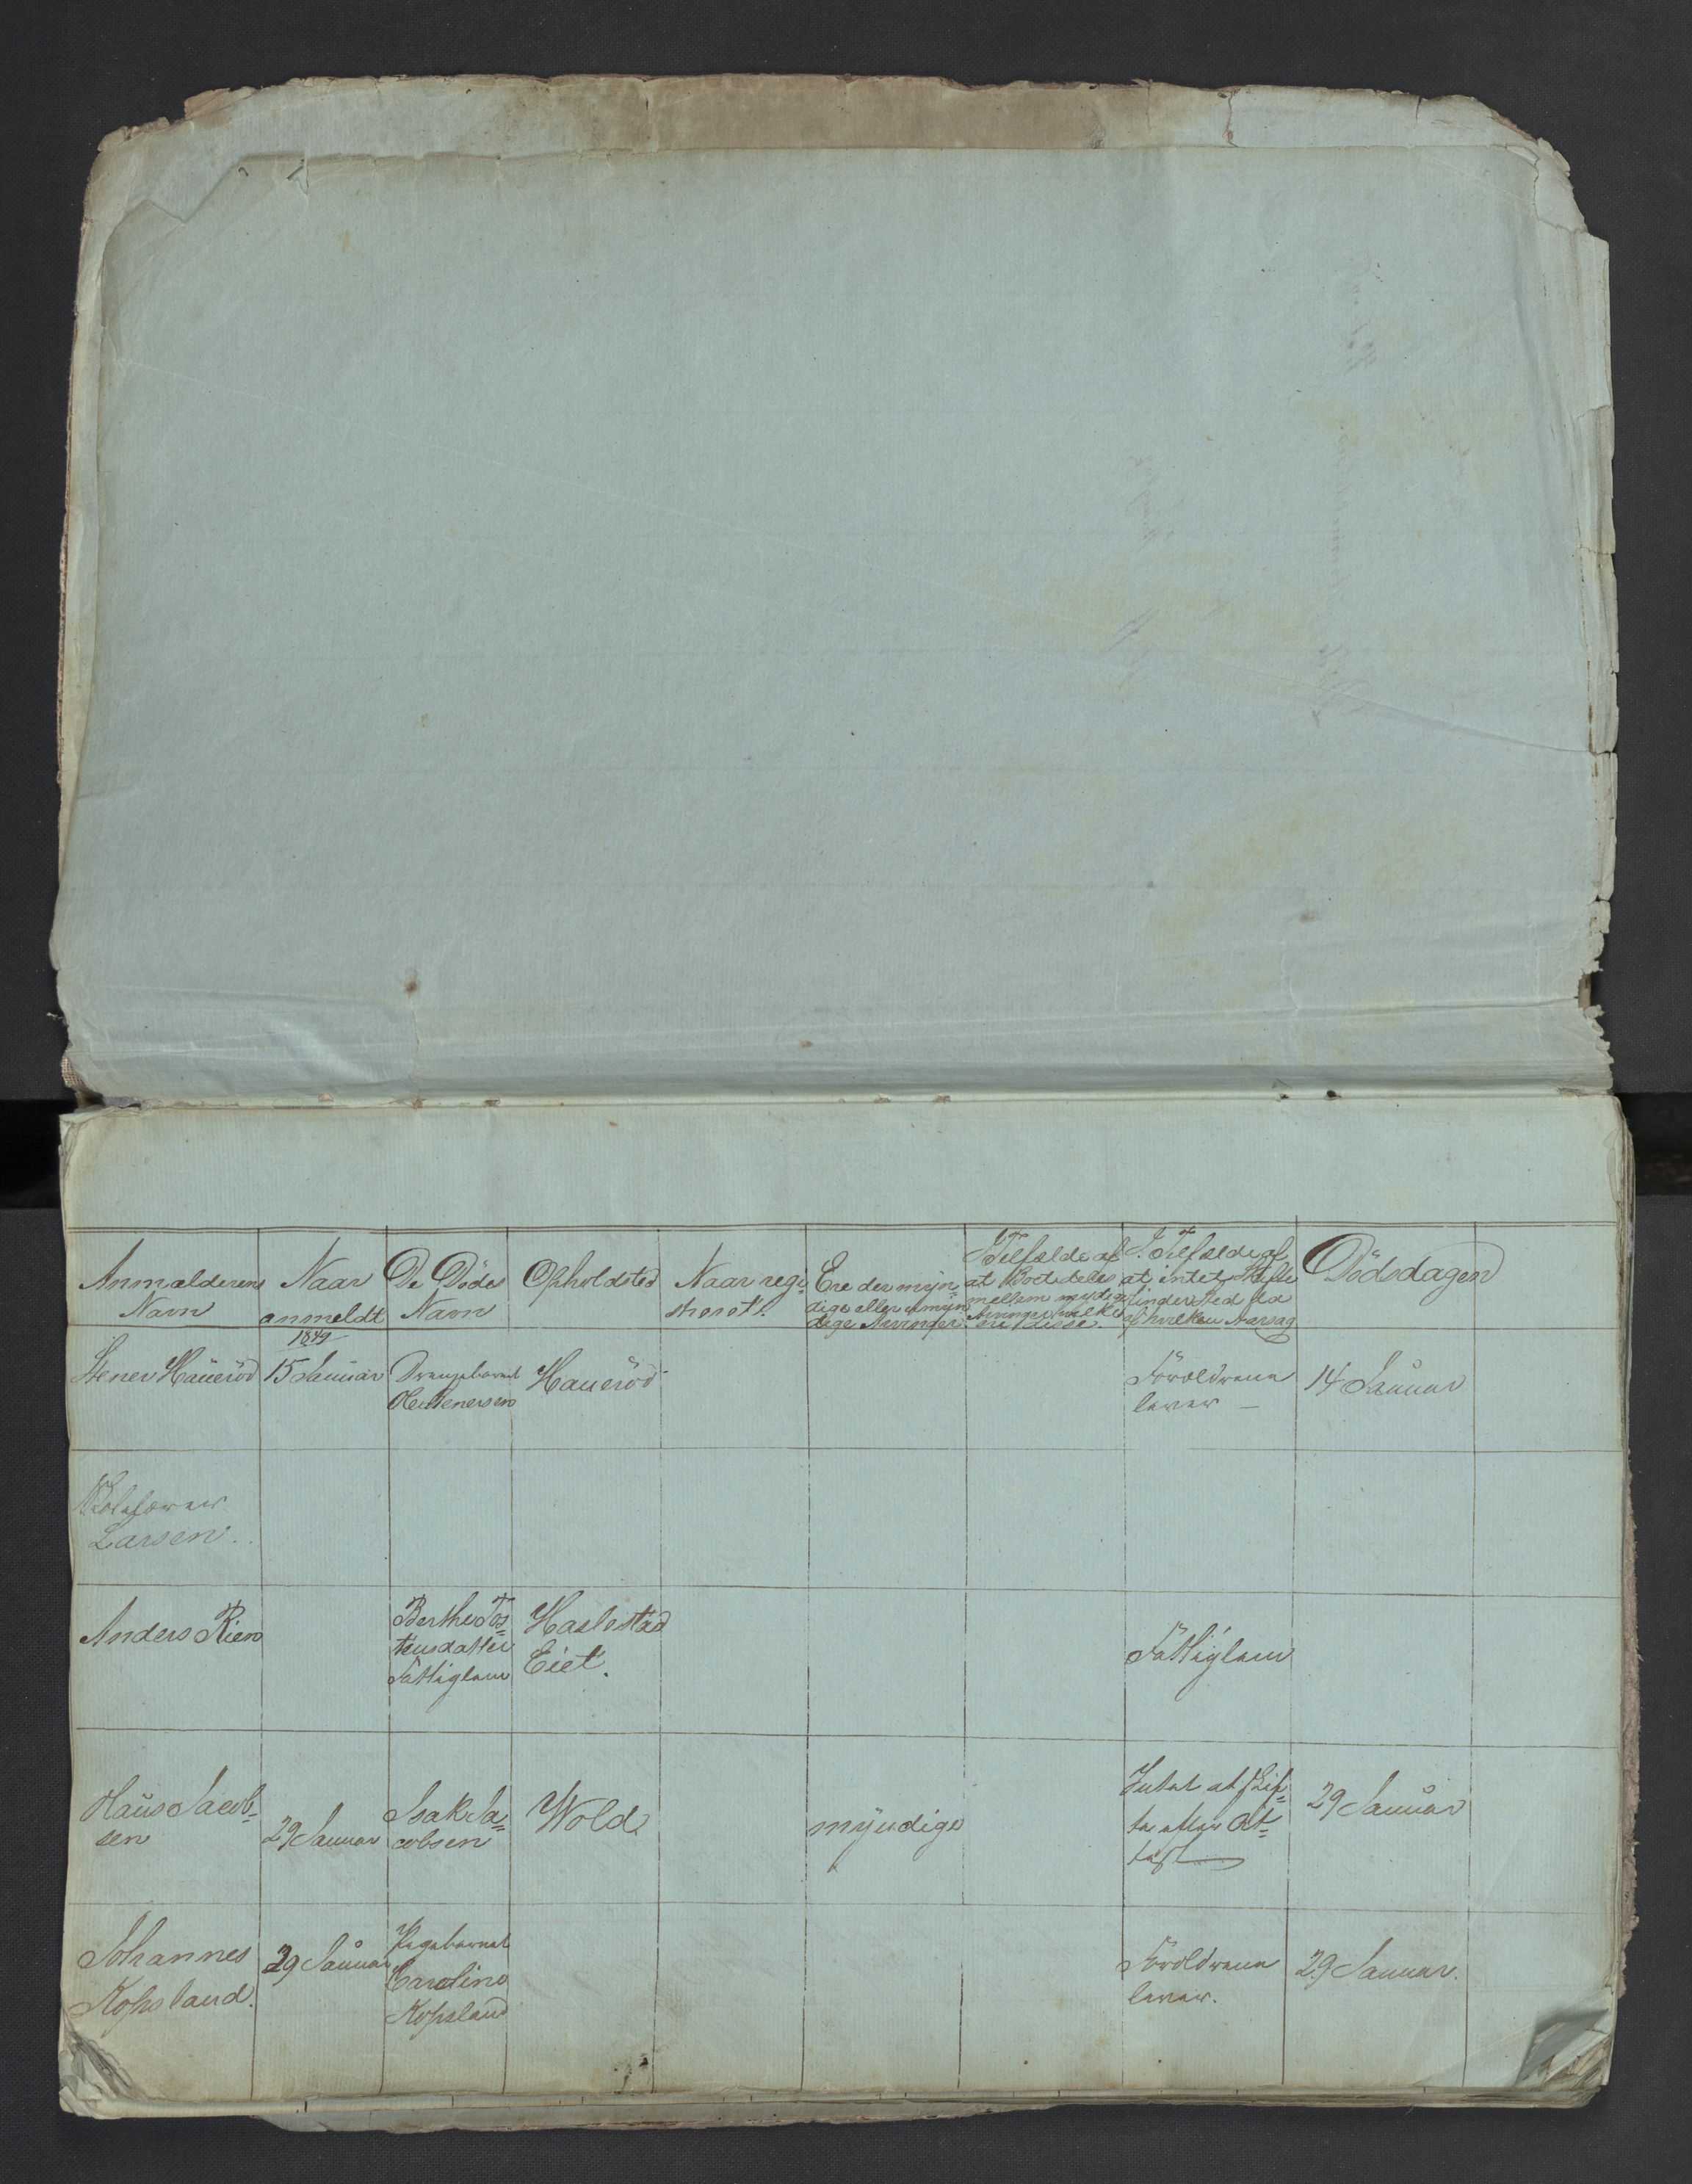 Anmælderens
Navn
Naar
anmeldt
De Dödes
Navn
Opholdsted
Naar regi-
streret?
Ere der myn-
dige eller umyn
dige Arvinger
I Tilfælde af
at Boet deles
mellem myndige
Arvinger, hvilke
ere disse.
I Tilfælde af
at intet Skifte
finder Sted da
af hvilken Aarsag
Dödsdagen
1849
Stener Haueröd
15 Januar
Drengebarnet
Ole Stenersen
Haueröd
Foröldrene
lever –
14 Januar
Larsen.
Anders Rien
Berthe Tos=
tensdatter
Fattiglem
Haslestad
Eiet.
Fattiglem
Hans Jacob=
sen
29 Januar
Isak Ja=
cobsen
Wold.
myndige
Intet at skif=
te efter At=
test
29 Januar
Johannes
Kopsland.
29 Januar
Pigebarnet
Caroline
Kopsland
Foröldrene
lever.
29 Januar.